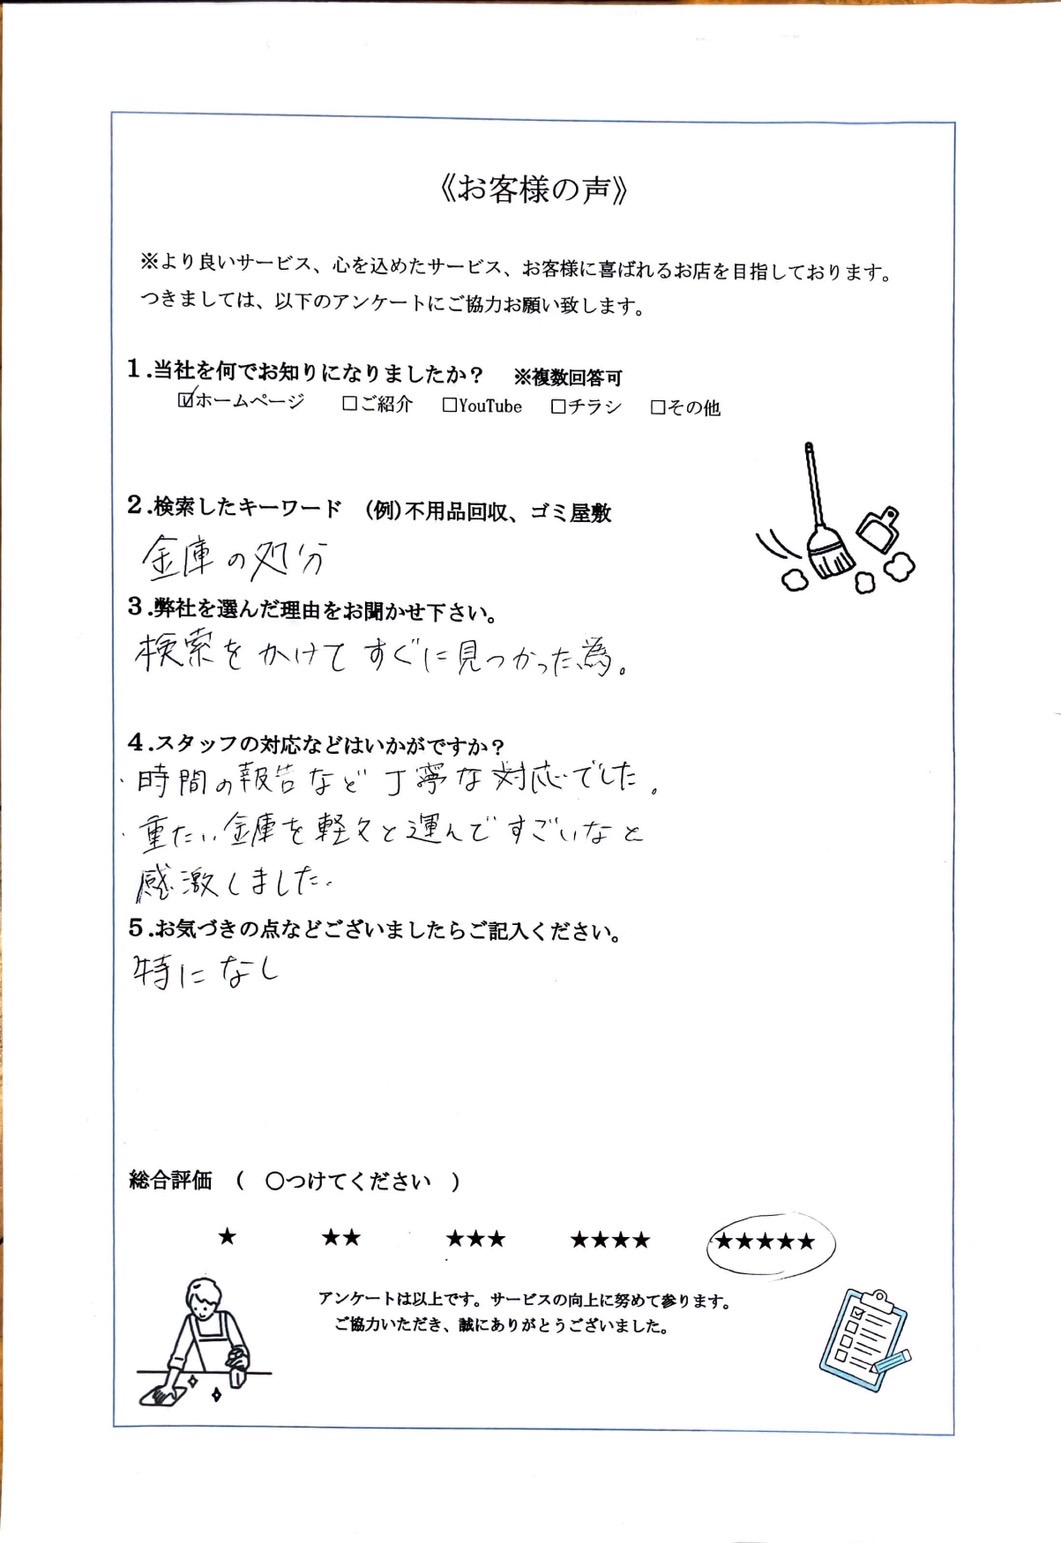 《お客様の声》
※より良いサービス、心を込めたサービス、お客様に喜ばれるお店を目指しております。
つきましては、以下のアンケートにご協力お願い致します。
1.当社を何でお知りになりましたか？ ※複数回答可
☑ホームページ □ご紹介 □YouTube □チラシ □その他
2.検索したキーワード (例)不用品回収、ゴミ屋敷
金庫の処分
3.弊社を選んだ理由をお聞かせ下さい。
検索をかけてすぐに見つかった為。
4.スタッフの対応などはいかがですか？
・時間の報告など丁寧な対応でした。
・重たい金庫を軽々と運んですごいなと
感激しました。
5.お気づきの点などございましたらご記入ください。
特になし
総合評価 ( ○つけてください )
★ ★★ ★★★ ★★★★ ★★★★★
アンケートは以上です。サービスの向上に努めて参ります。
ご協力いただき、誠にありがとうございました。